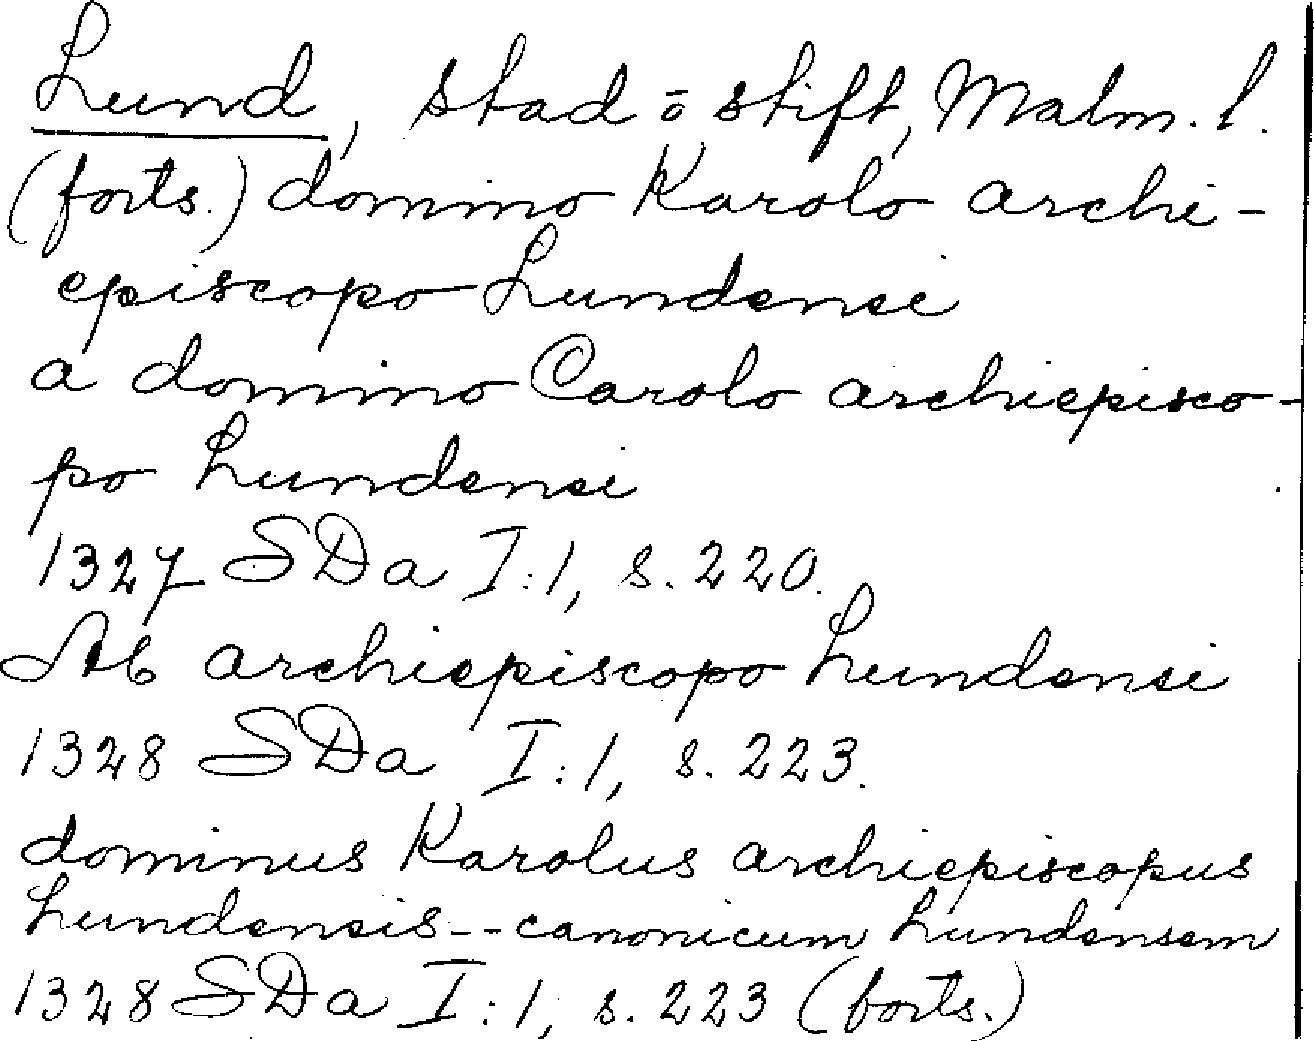 Lund, stad o stift, Malm. l.
(forts.) domino Karolo archi-
episcopo Lundensi
a domino Carolo archiepisco-
po Lundensi
1327 SDa I:1, s. 220.
Ab archiepiscopo Lundensi
1328 SDa I:1, s. 223.
dominus Karolus archiepiscopus
Lundensis -- canonicum Lundensem
1328 SDa I:1, s. 223 (forts.)